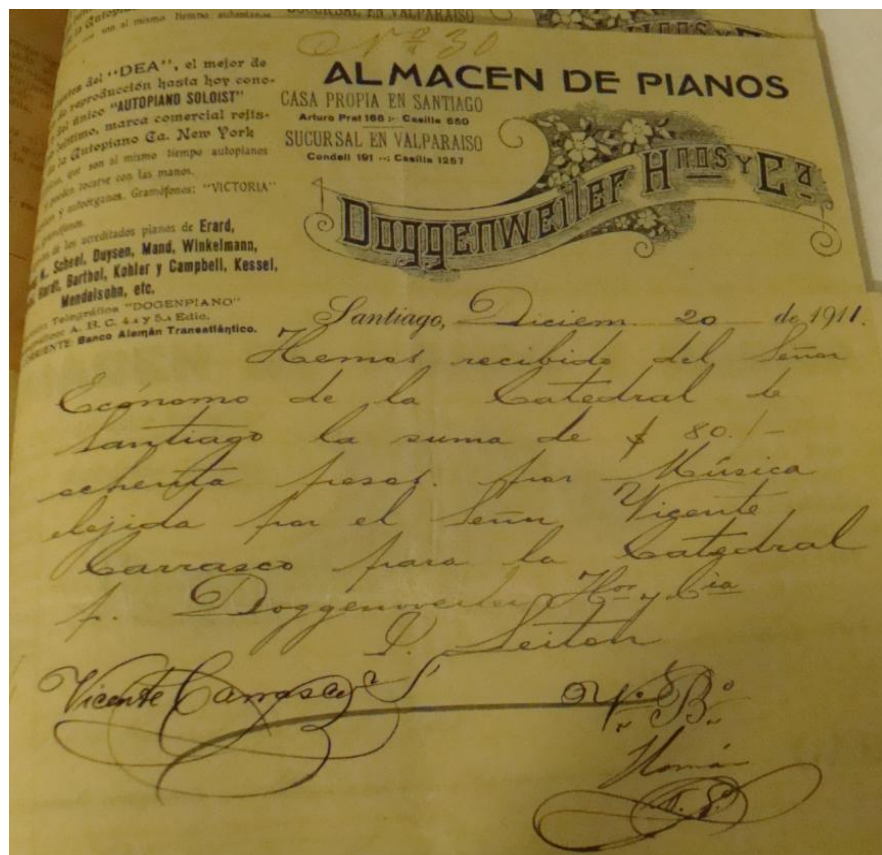 SUCURSAL EN VALPARAISO
Nº 30
ALMACEN DE PIANOS
CASA PROPIA EN SANTIAGO
Arturo Prat 166 :- Casilla 650
SUCURSAL EN VALPARAISO
Condell 191 -:- Casilla 1257
Doggenweiler Hnos y Ca
del "DEA", el mejor de
reproducción hasta hoy cono-
del único "AUTOPIANO SOLOIST"
marca comercial rejis-
la Autopiano Ca. New York
que son al mismo tiempo autopianos
pueden tocarse con las manos.
y autoórganos. Gramófonos: "VICTORIA"
de los acreditados pianos de Erard,
Scheel, Duysen, Mand, Winkelmann,
Barthol, Kohler y Campbell, Kessel,
Mendelsohn, etc.
Telegráfica "DOGENPIANO"
A. B. C. 4.a y 5.a Edic.
Banco Alemán Transatlántico.
Santiago, Diciem. 20 de 1911.
Hemos recibido del Señor
Ecónomo de la Catedral de
Santiago la suma de $ 80./-
ochenta pesos. por Música
elejida por el Señor Vicente
Carrasco para la Catedral
p. Doggenweiler Hos y Cia
Vicente Carrasco S
V. B.